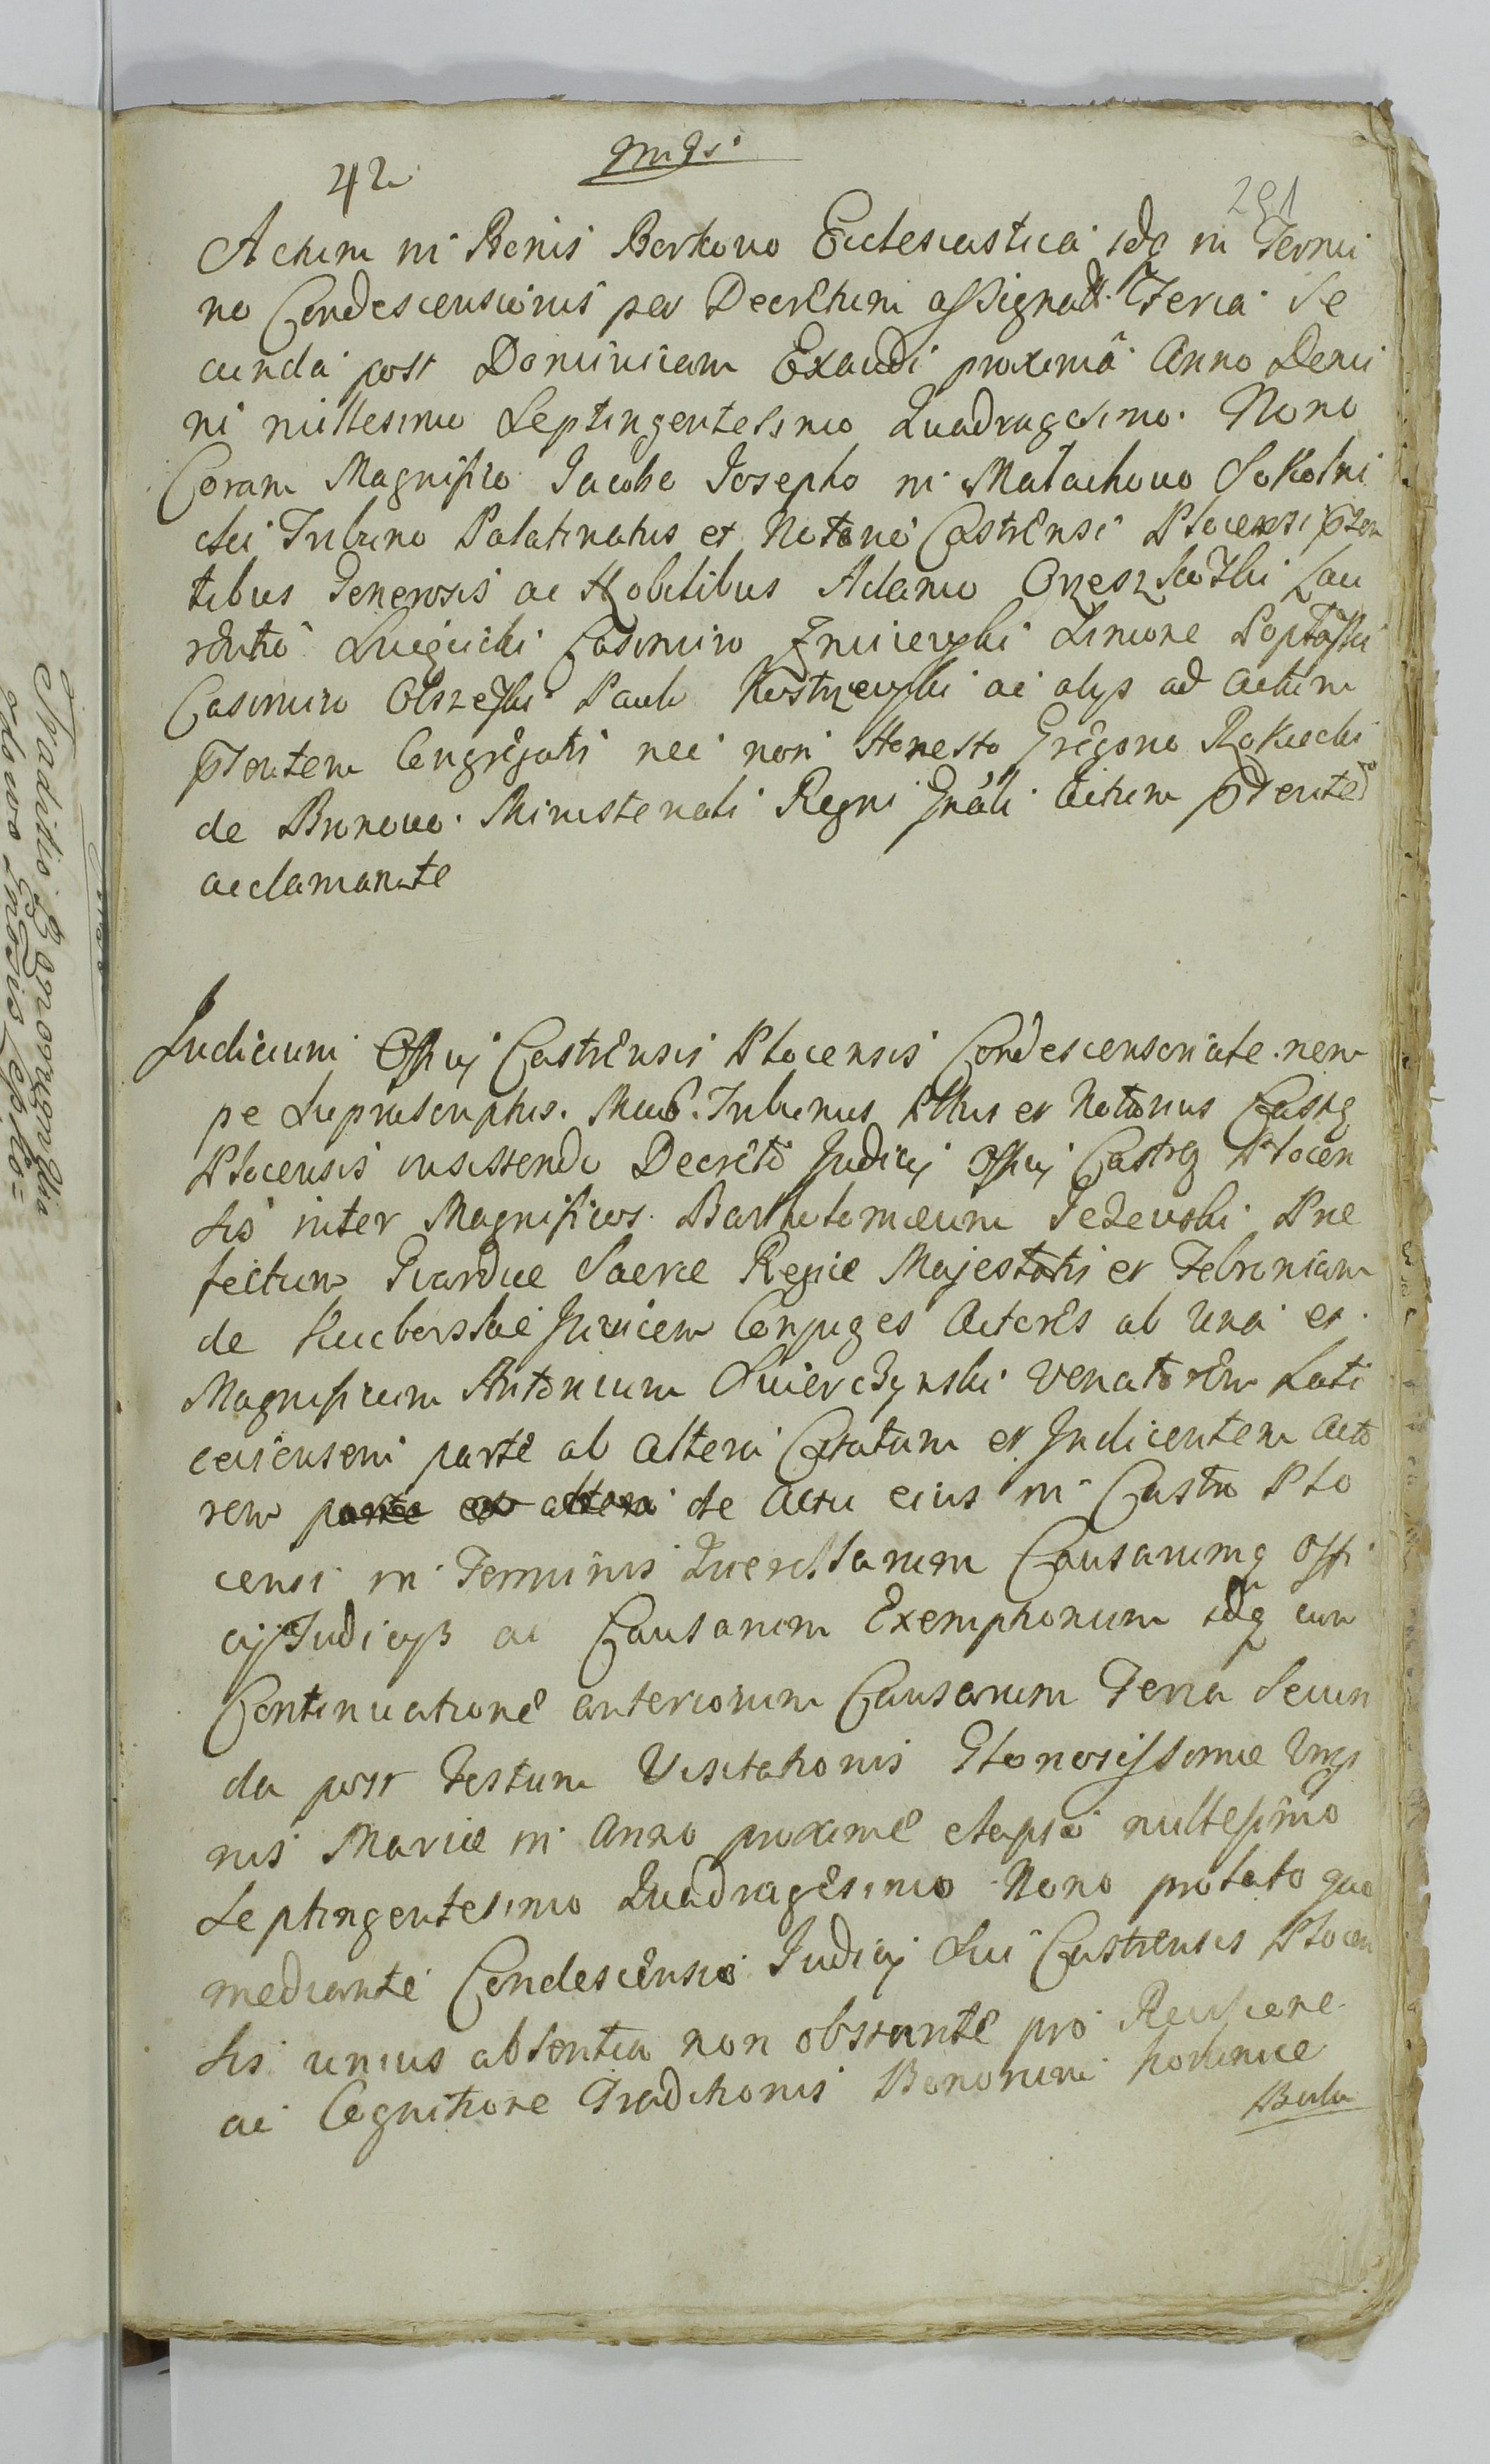 42
291
Actum in Bonis Borkowo Ecclesiastica idq in Termi
no Condescensionis per Decretum assignatt. Feria Se
cunda post Dominicam Exaudi proxima Anno Domi
ni millesimo Septingentesimo Quadragesimo Nono
Coram Magnifico Jacobo Josepho in Małachowo Sokolni
cki Tribuno Palatinatus et Notario Castrensi Plocensi
tibus Generosis ac Nobilibus Adamo Lau
rentio Casimiro Zmijewski Simone
Casimiro Olszeski Paulo Kostrzewski ac alys ad Actum
Congregatis nec non Honesto Gregorio Rokicki
de Bronowo Ministeriali Regni Gnali Actum
acclamante
Judicium Officij Castrensis Plocensis Condescensoriale nem
pe Suprascriptus. Tribunus et Notarius Castr
Plocensis insistendo Decreto Judicij Officij Castrq Plocen
sis inter Magnificos Bartholomæum Jeżewski Præ
fectum Guardiæ Sacræ Regiæ Majestatis et Febroniam
de Invicem Conjuges Actores ab una et
Magnificum Antonium Swierczynski Venatorem Lati
coviensem parte ab altera Citatum et Indicentem Acto
rem parte ex altera de Actu eius in Castro Plo
censi in Terminis Querellarum Causarumq Offi
cij Judicijs ac Causarum Exemptionum idq cum
Continuatione anteriorum Causarum Feria Secun
da post Festum Visitationis Gloriosissimæ Virgi
nis Mariæ in Anno proxime elapso millesimo
Septingentesimo Quadragesimo Nono prolato quo
mediante Condescensio Judicij Sui Castrensis Plocen
sis unius absentia non obstante pro
ac Cognitione Traditionis Bonorum